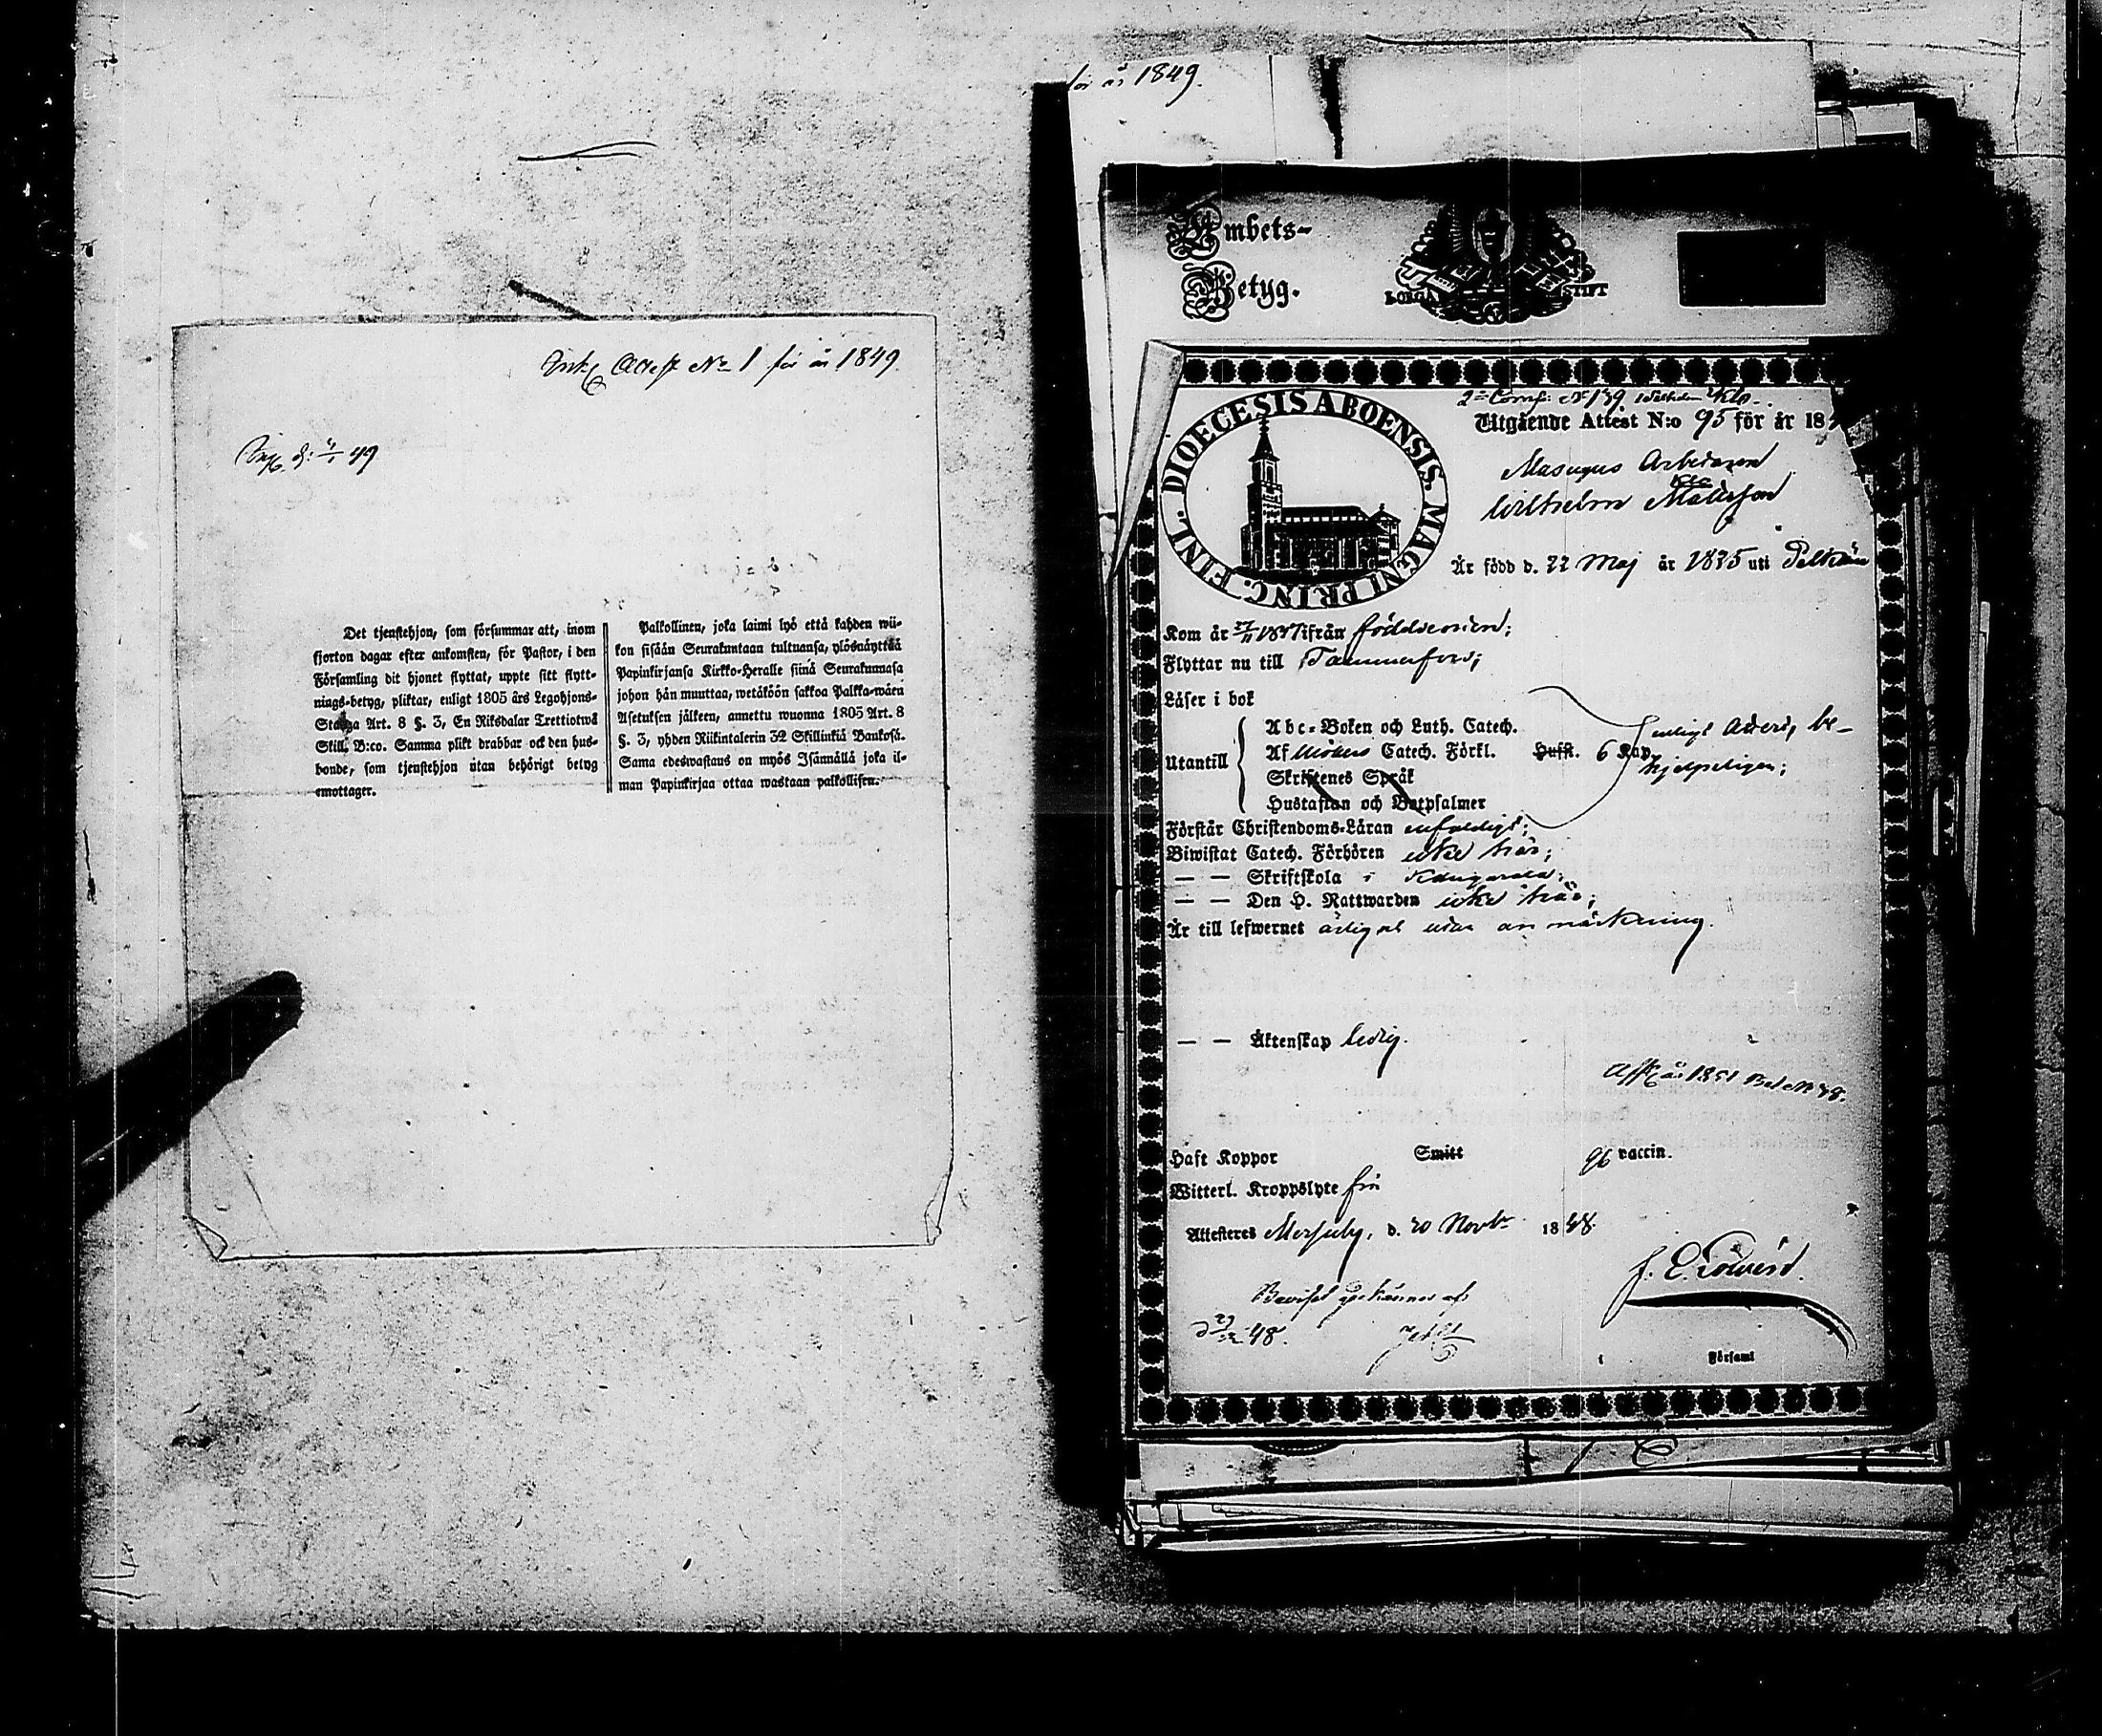 Ink. Attest No 1 för år 1849.
49
Det tjenstehjon, som försummar att, inom
fjorton dagar efter ankomsten, för Pastor, i den
Församling dit hjonet flyttat, uppte sitt flytt-
nings-betyg, pliktar, enligt 1805 års Legohjons-
Stadga Art. 8 §. 3, En Riksdalar Trettiotwå
Skill. B:co. Samma plikt drabbar ock den hus-
bonde, som tjenstehjon utan behörigt betyg
emottager.
Palkollinen, joka laimi lyö että kahden wii-
kon sisään Seurakuntaan tultuansa, ylösnäyttää
Papinkirjansa Kirkko-Heralle siinä Seurakunnasa
johon hän muuttaa, wetäköön sakkoa Palkka-wäen
Asetuksen jälkeen, annettu wuonna 1805 Art. 8
§. 3, yhden Riikintalerin 32 Skillinkiä Bankosa.
Sama edeswastaus on myös Isännällä joka il-
man Papinkirjaa ottaa wastaan palkollisen.
för år 1849.
Embets-
Betyg.
BORGÅ STIFT
DIOECESIS ABOENSIS. MAGNI PRINC. FINL.
No 139 Wilhelm
Utgående Attest N:o 95 för år 184
Masugns Arbetaren
Wilhelm Mattsson
Är född d. 22 Maj år 1825 uti Pelkäne
Kom år ifrån födelseorten;
Flyttar nu till Tammerfors;
Läser i bok
Utantill
Abc-Boken och Luth. Catech.
Af Möllers Catech. Förkl. Husst. 6 Kap.
Skriftenes Språk
Hustaflan och Botpsalmer
enligt Attest, be-
hjelpeligen;
Förstår Christendoms-Läran enfaldigt;
Biwistat Catech. Förhören icke här;
— — Skriftskola i Kangasala;
— — Den H. Nattwarden icke här;
Är till lefwernet ärlig och utan anmärkning.
— — Äktenskap ledig.
år 1851 Bet. No 48.
Haft Koppor Smitt vaccin.
Witterl. Kroppslyte fri
Attesteres Messuby, d. 20 Novbr 1848
Beviset igenkännes af
d 29/12 48.
Församl